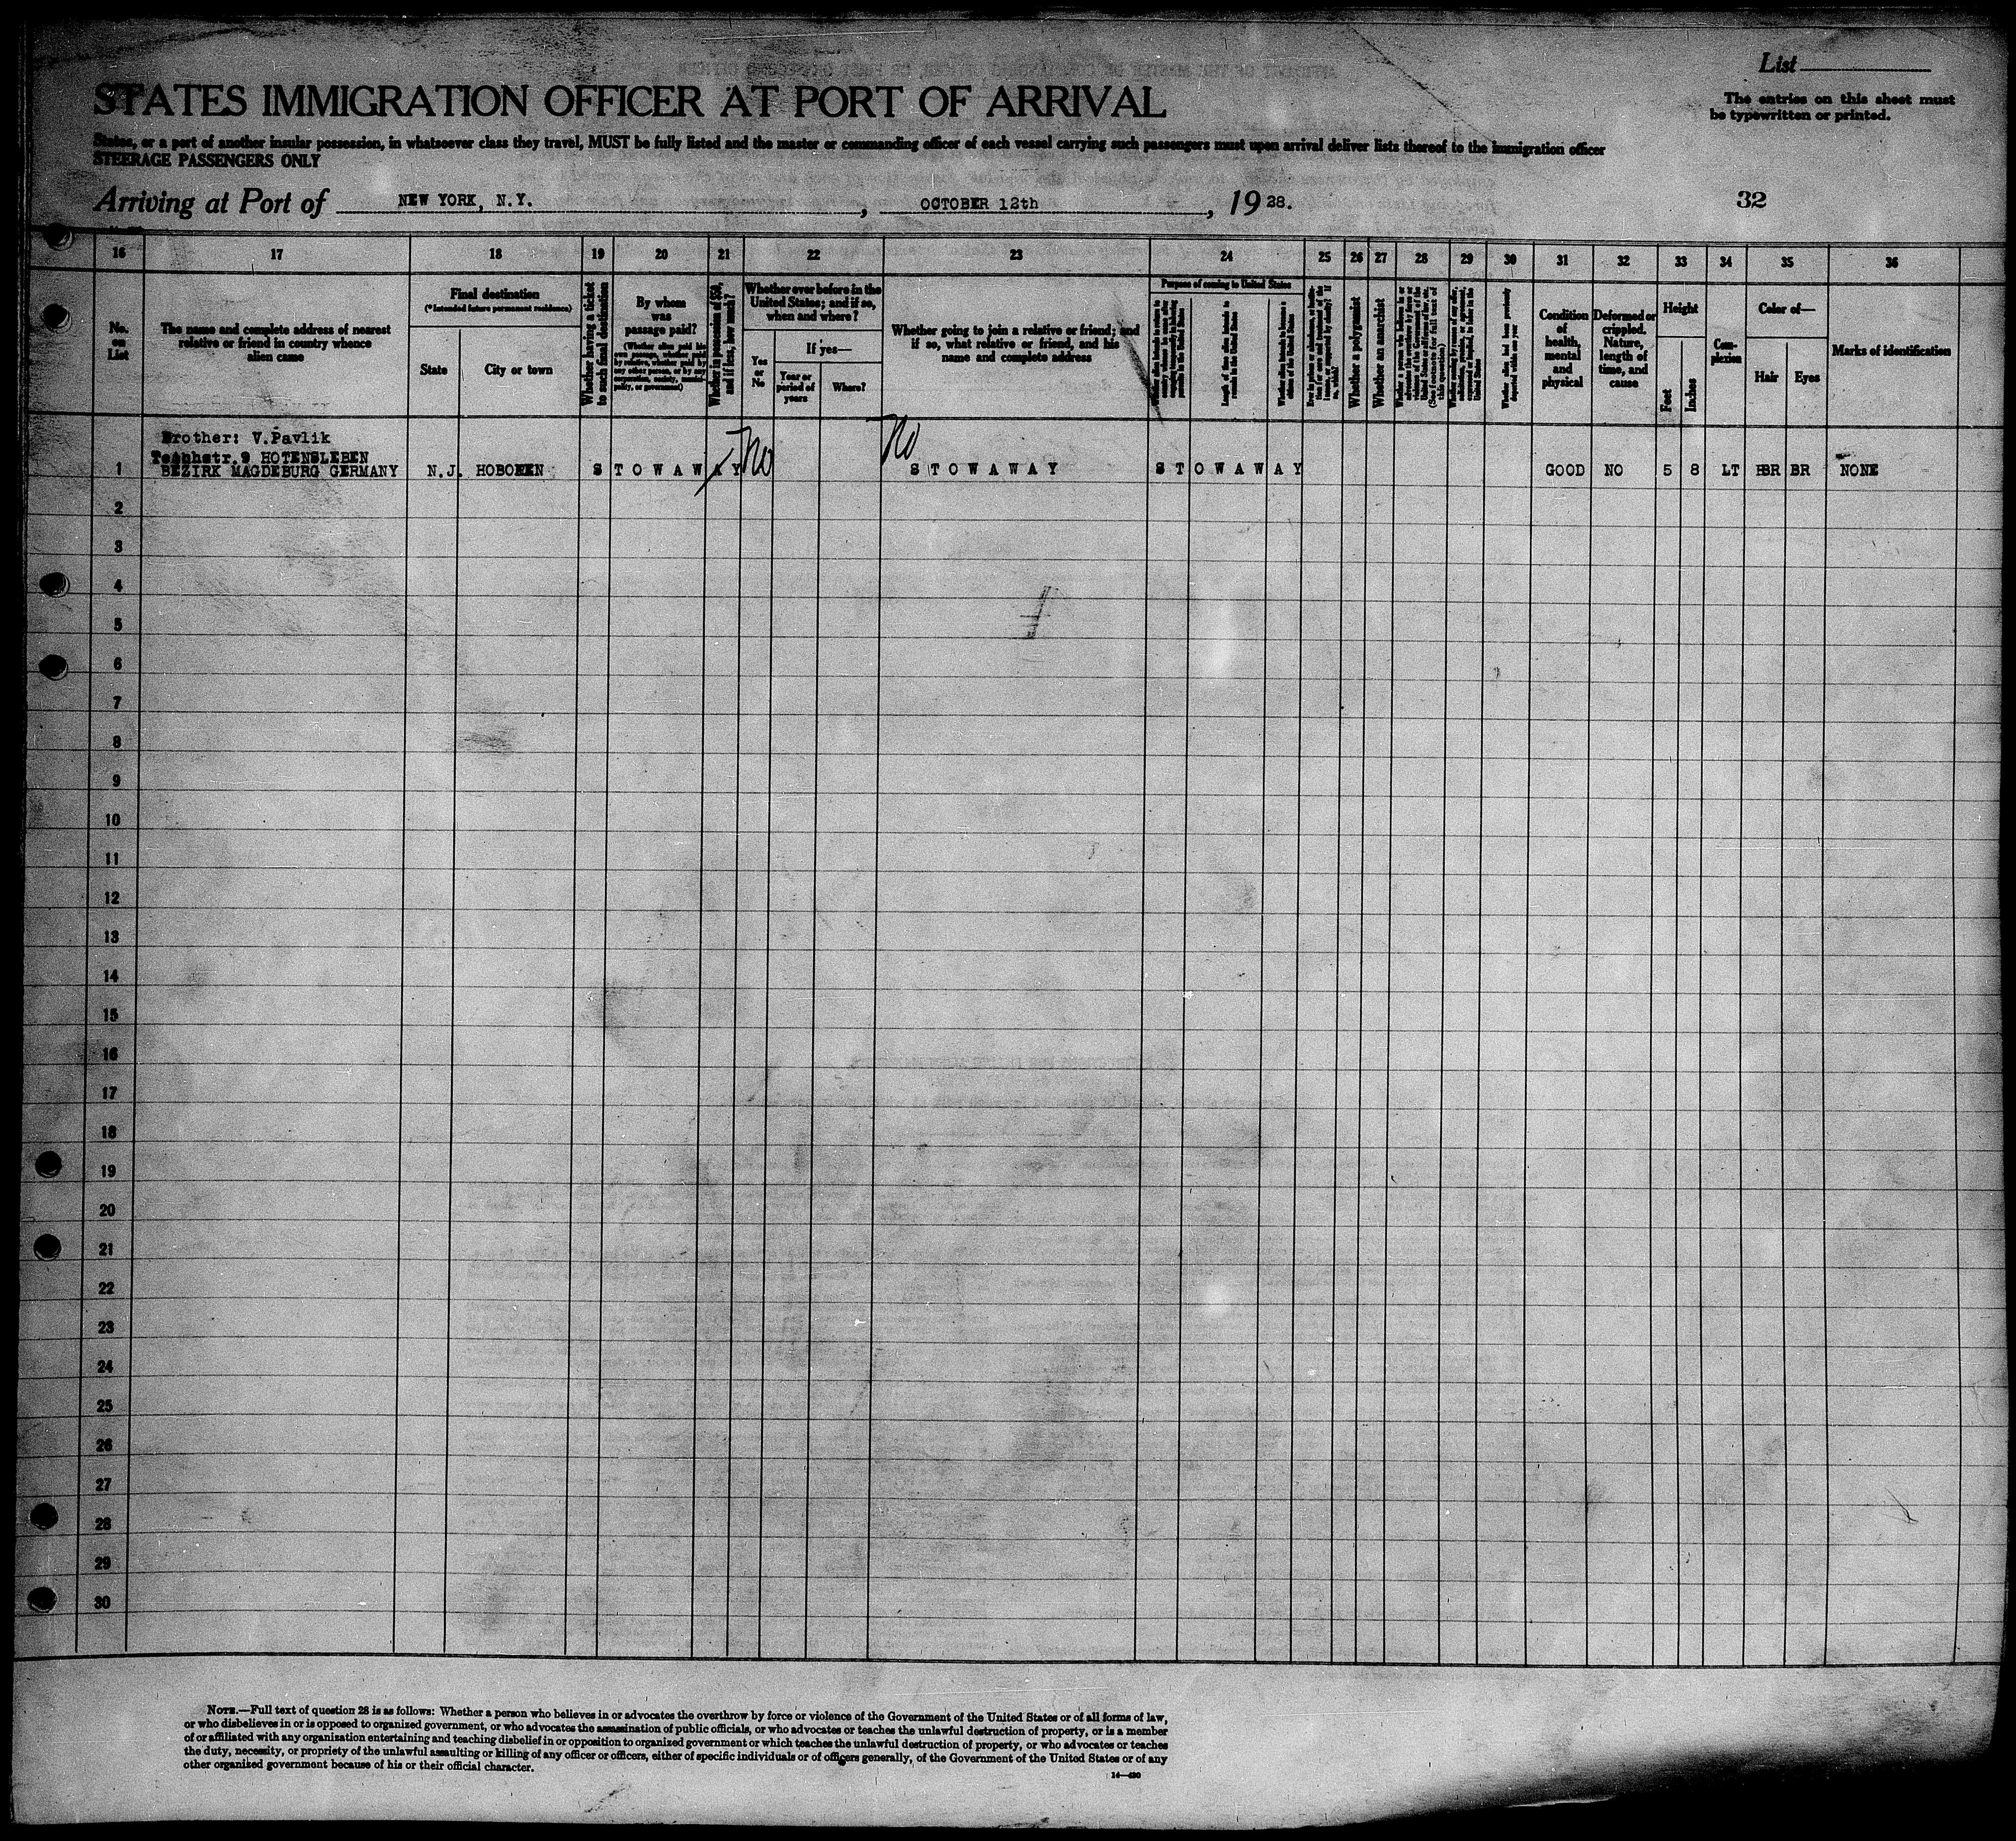 List
STATES IMMIGRATION OFFICER AT PORT OF ARRIVAL
The entries on this sheet must
be typewritten or printed.
States, or a port of another insular possession, in whatsoever class they travel, MUST be fully listed and the master or commanding officer of each vessel carrying such passengers must upon arrival deliver lists thereof to the immigration officer
STEERAGE PASSENGERS ONLY
Arriving at Port of NEW YORK, N.Y., OCTOBER 12th, 19 28.
32
16 17 18 19 20 21 22 23 24 25 26 27 28 29 30 31 32 33 34 35 36
No. on List
The name and complete address of nearest relative or friend in country whence alien came
Final destination
(*Intended future permanent residence)
State
City or town
Whether having a ticket to such final destination
By whom was passage paid?
Whether in possession of $50, and if less, how much?
Whether ever before in the United States; and if so, when and where?
Yes or No
If yes—
Year or period of years
Where?
Whether going to join a relative or friend; and if so, what relative or friend, and his name and complete address
Purpose of coming to United States
Length of time alien intends to remain in the United States
Whether a polygamist
Whether an anarchist
Condition of health, mental and physical
Deformed or crippled. Nature, length of time, and cause
Height
Feet
Inches
Complexion
Color of—
Hair
Eyes
Marks of identification
Brother: V.Pavlik
HOTENSLEBEN
1 BEZIRK MAGDEBURG GERMANY N.J. HOBOKEN S T O W A W A Y No No S T O W A W A Y S T O W A W A Y GOOD NO 5 8 LT BR BR NONE
2
3
4
5
6
7
8
9
10
11
12
13
14
15
16
17
18
19
20
21
22
23
24
25
26
27
28
29
30
NOTE.—Full text of question 28 is as follows: Whether a person who believes in or advocates the overthrow by force or violence of the Government of the United States or of all forms of law,
or who disbelieves in or is opposed to organized government, or who advocates the assassination of public officials, or who advocates or teaches the unlawful destruction of property, or is a member
of or affiliated with any organization entertaining and teaching disbelief in or opposition to organized government or which teaches the unlawful destruction of property, or who advocates or teaches
the duty, necessity, or propriety of the unlawful assaulting or killing of any officer or officers, either of specific individuals or of officers generally, of the Government of the United States or of any
other organized government because of his or their official character.